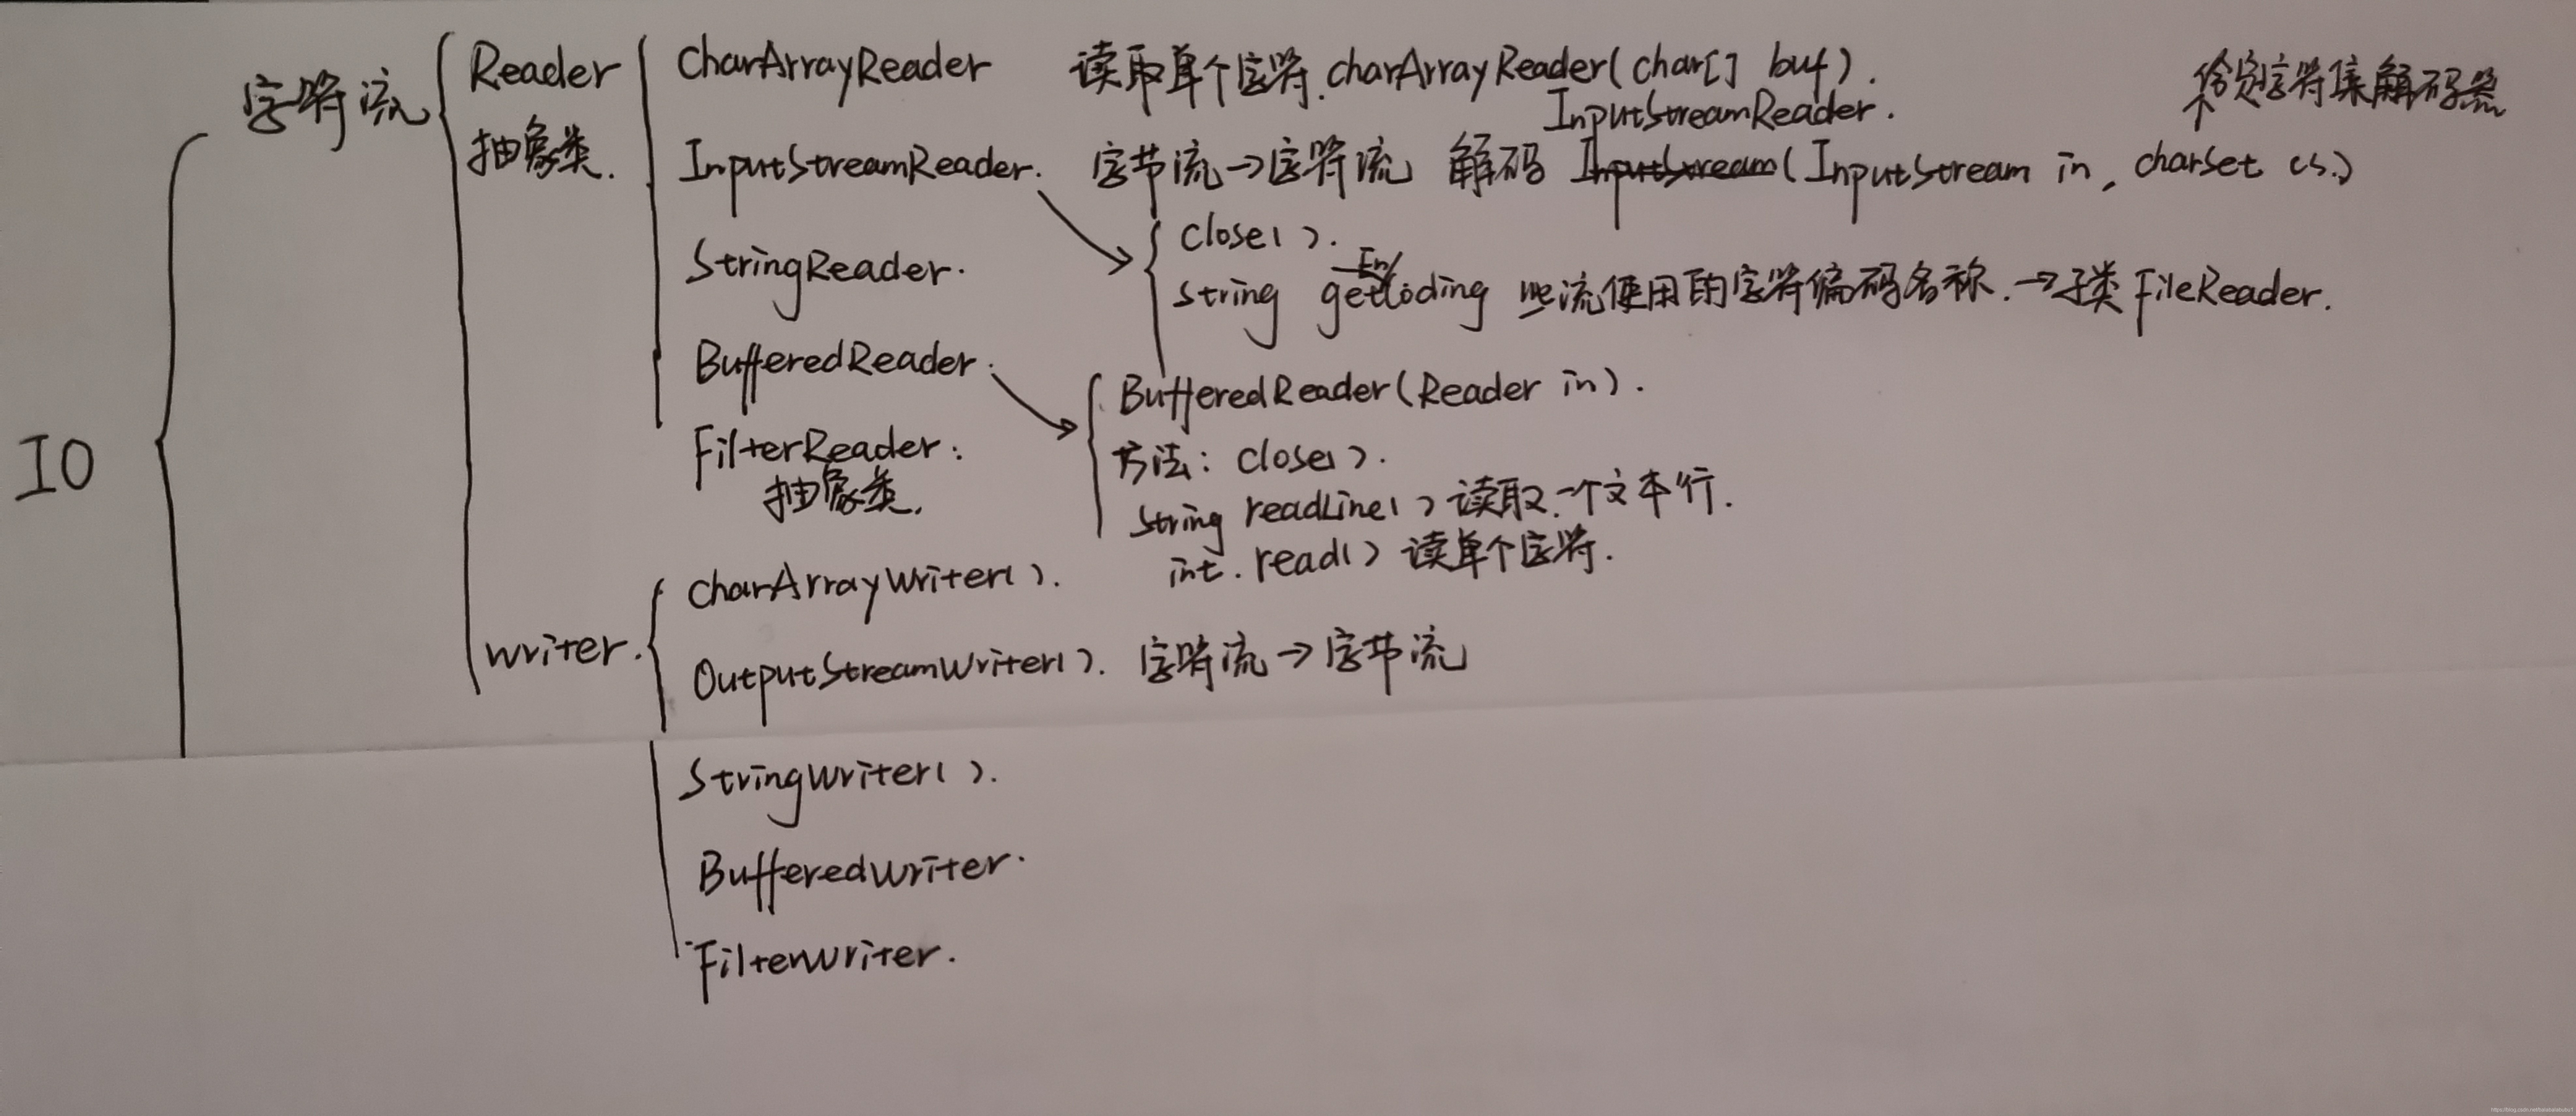 IO
字符流
Reader
抽象类.
CharArrayReader 读取单个字符. charArrayReader(char[] buf).
InputStreamReader.
给定字符集解码器
InputStreamReader. 字节流→字符流 解码 InputStream(InputStream in, charset cs.)
close().
En
String getCoding 此流使用的字符编码名称.→子类 FileReader.
StringReader.
BufferedReader.
BufferedReader(Reader in).
方法: close().
String readLine() 读取一个文本行.
int. read() 读单个字符.
FilterReader:
抽象类.
writer.
charArrayWriter().
OutputStreamWriter(). 字符流→字节流
StringWriter().
BufferedWriter.
FilterWriter.